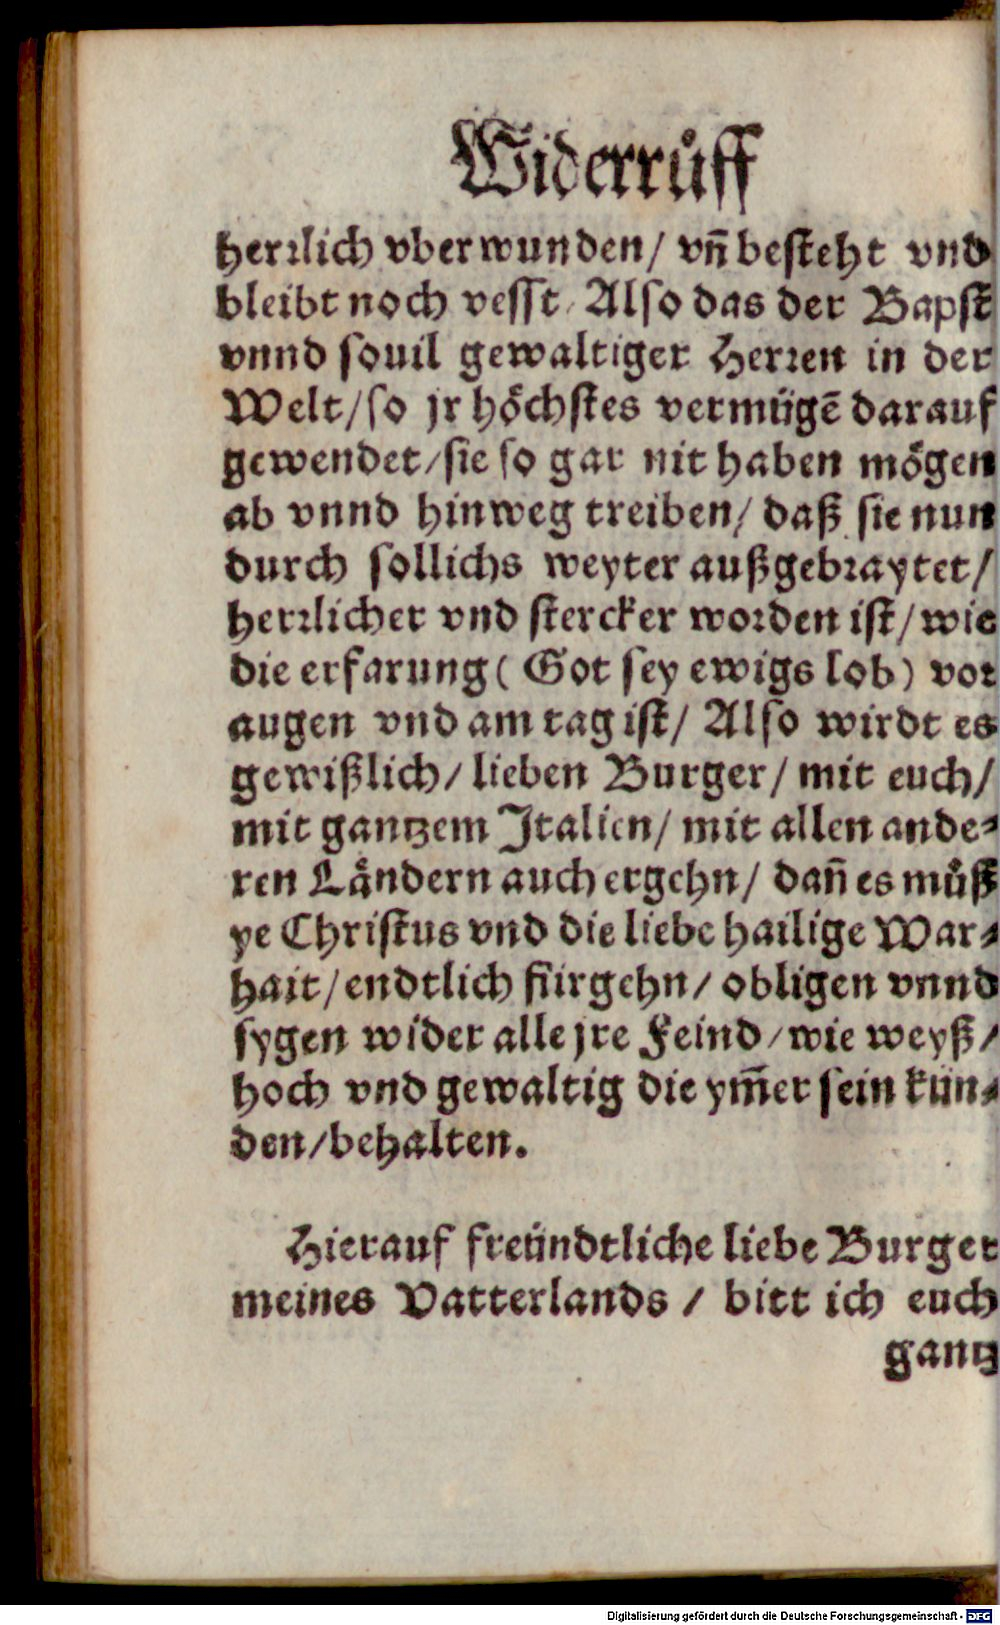 Widerrůff
herꝛlich vberwunden/ vn̄ besteht vnd
bleibt noch vesst/ Also das der Bapst
vnnd souil gewaltiger Herꝛen in der
Welt/so jr hoͤchstes vermügē darauf
gewendet/sie so gar nit haben moͤgen
ab vnnd hinweg treiben/ daß sie nun
durch sollichs weyter außgebꝛaytet/
herꝛlicher vnd stercker woꝛden ist/ wie
die erfarung ( Got sey ewigs lob) voꝛ
augen vnd am tag ist/ Also wirdt es
gewißlich/ lieben Burger/ mit euch/
mit gantzem Italien/ mit allen ande⸗
ren Laͤndern auch ergehn/ dan̄ es muͤß
ye Christus vnd die liebe hailige War⸗
hait/ endtlich fürgehn/ obligen vnnd
sygen wider alle jre Feind/wie weyß/
hoch vnd gewaltig die ym̄er sein kün⸗
den/behalten.
Hierauf freündtliche liebe Burger
meines Vatterlands / bitt ich euch
gantz
Digitalisierung gefördert durch die Deutsche Forschungsgemeinschaft - DFG